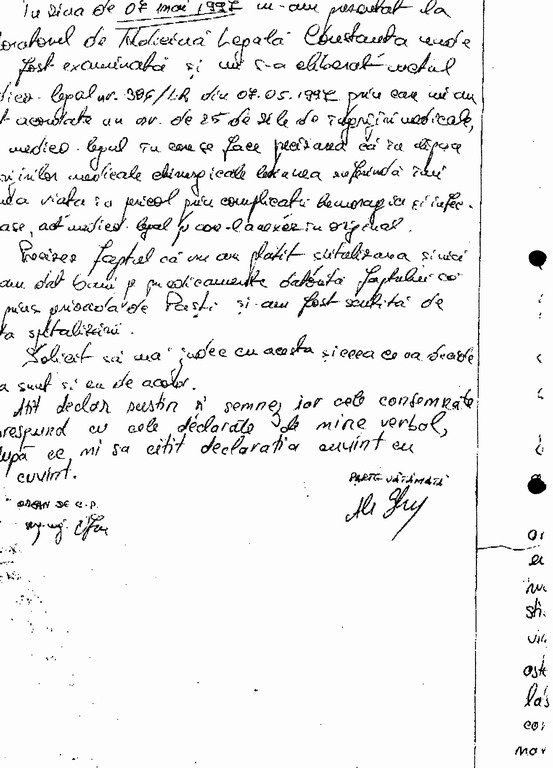 În ziua de 07 mai 1997 m-am prezentat la
oratorul de Medicină Legală Constanta unde
fost examinată și mi s-a eliberat actul
dico-legal nr. 396/LR din 07.05.1997 prin care mi au
t acordate un nr. de 25 de zile de îngrijiri medicale,
medico-legal în care se face precizarea că în lipsa
ijirilor medicale chirurgicale leziunea
da viata în pericol prin complicatii hemoragice și infec-
ase, act medico-legal pe care-l anexez în original.
Precizez faptul că nu am plătit spitalizarea și nici
am dat bani pe medicamente datorită faptului că
prins perioada de Paști și am fost scutită de
ta spitalizării.
Solicit să mă judec cu acesta și ceea ce va decide
a sunt și eu de acord.
Atît declar susțin și semnez iar cele consemnate
respund cu cele declarate de mine verbal,
upă ce mi sa citit declaratia cuvînt cu
cuvînt.
ORGAN DE C.P. PARTE VĂTĂMATĂ